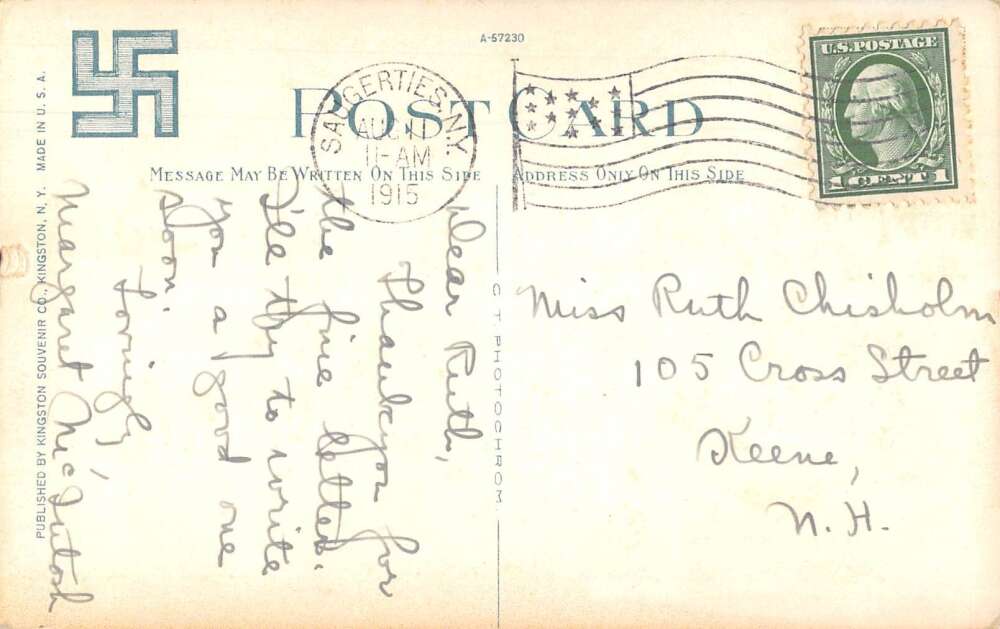 A-57230
POST CARD
MESSAGE MAY BE WRITTEN ON THIS SIDE
ADDRESS ONLY ON THIS SIDE
SAUGERTIES, N.Y.
AUG 11
11-AM
1915
U.S. POSTAGE
1 CENT 1
PUBLISHED BY KINGSTON SOUVENIR CO., KINGSTON, N. Y. MADE IN U. S. A.
C T PHOTOCHROM
Dear Ruth,
Thank you for
the fine letter.
I'll try to write
you a good one
soon.
Lovingly,
Margaret McIntosh
Miss Ruth Chisholm
105 Cross Street
Keene,
N. H.